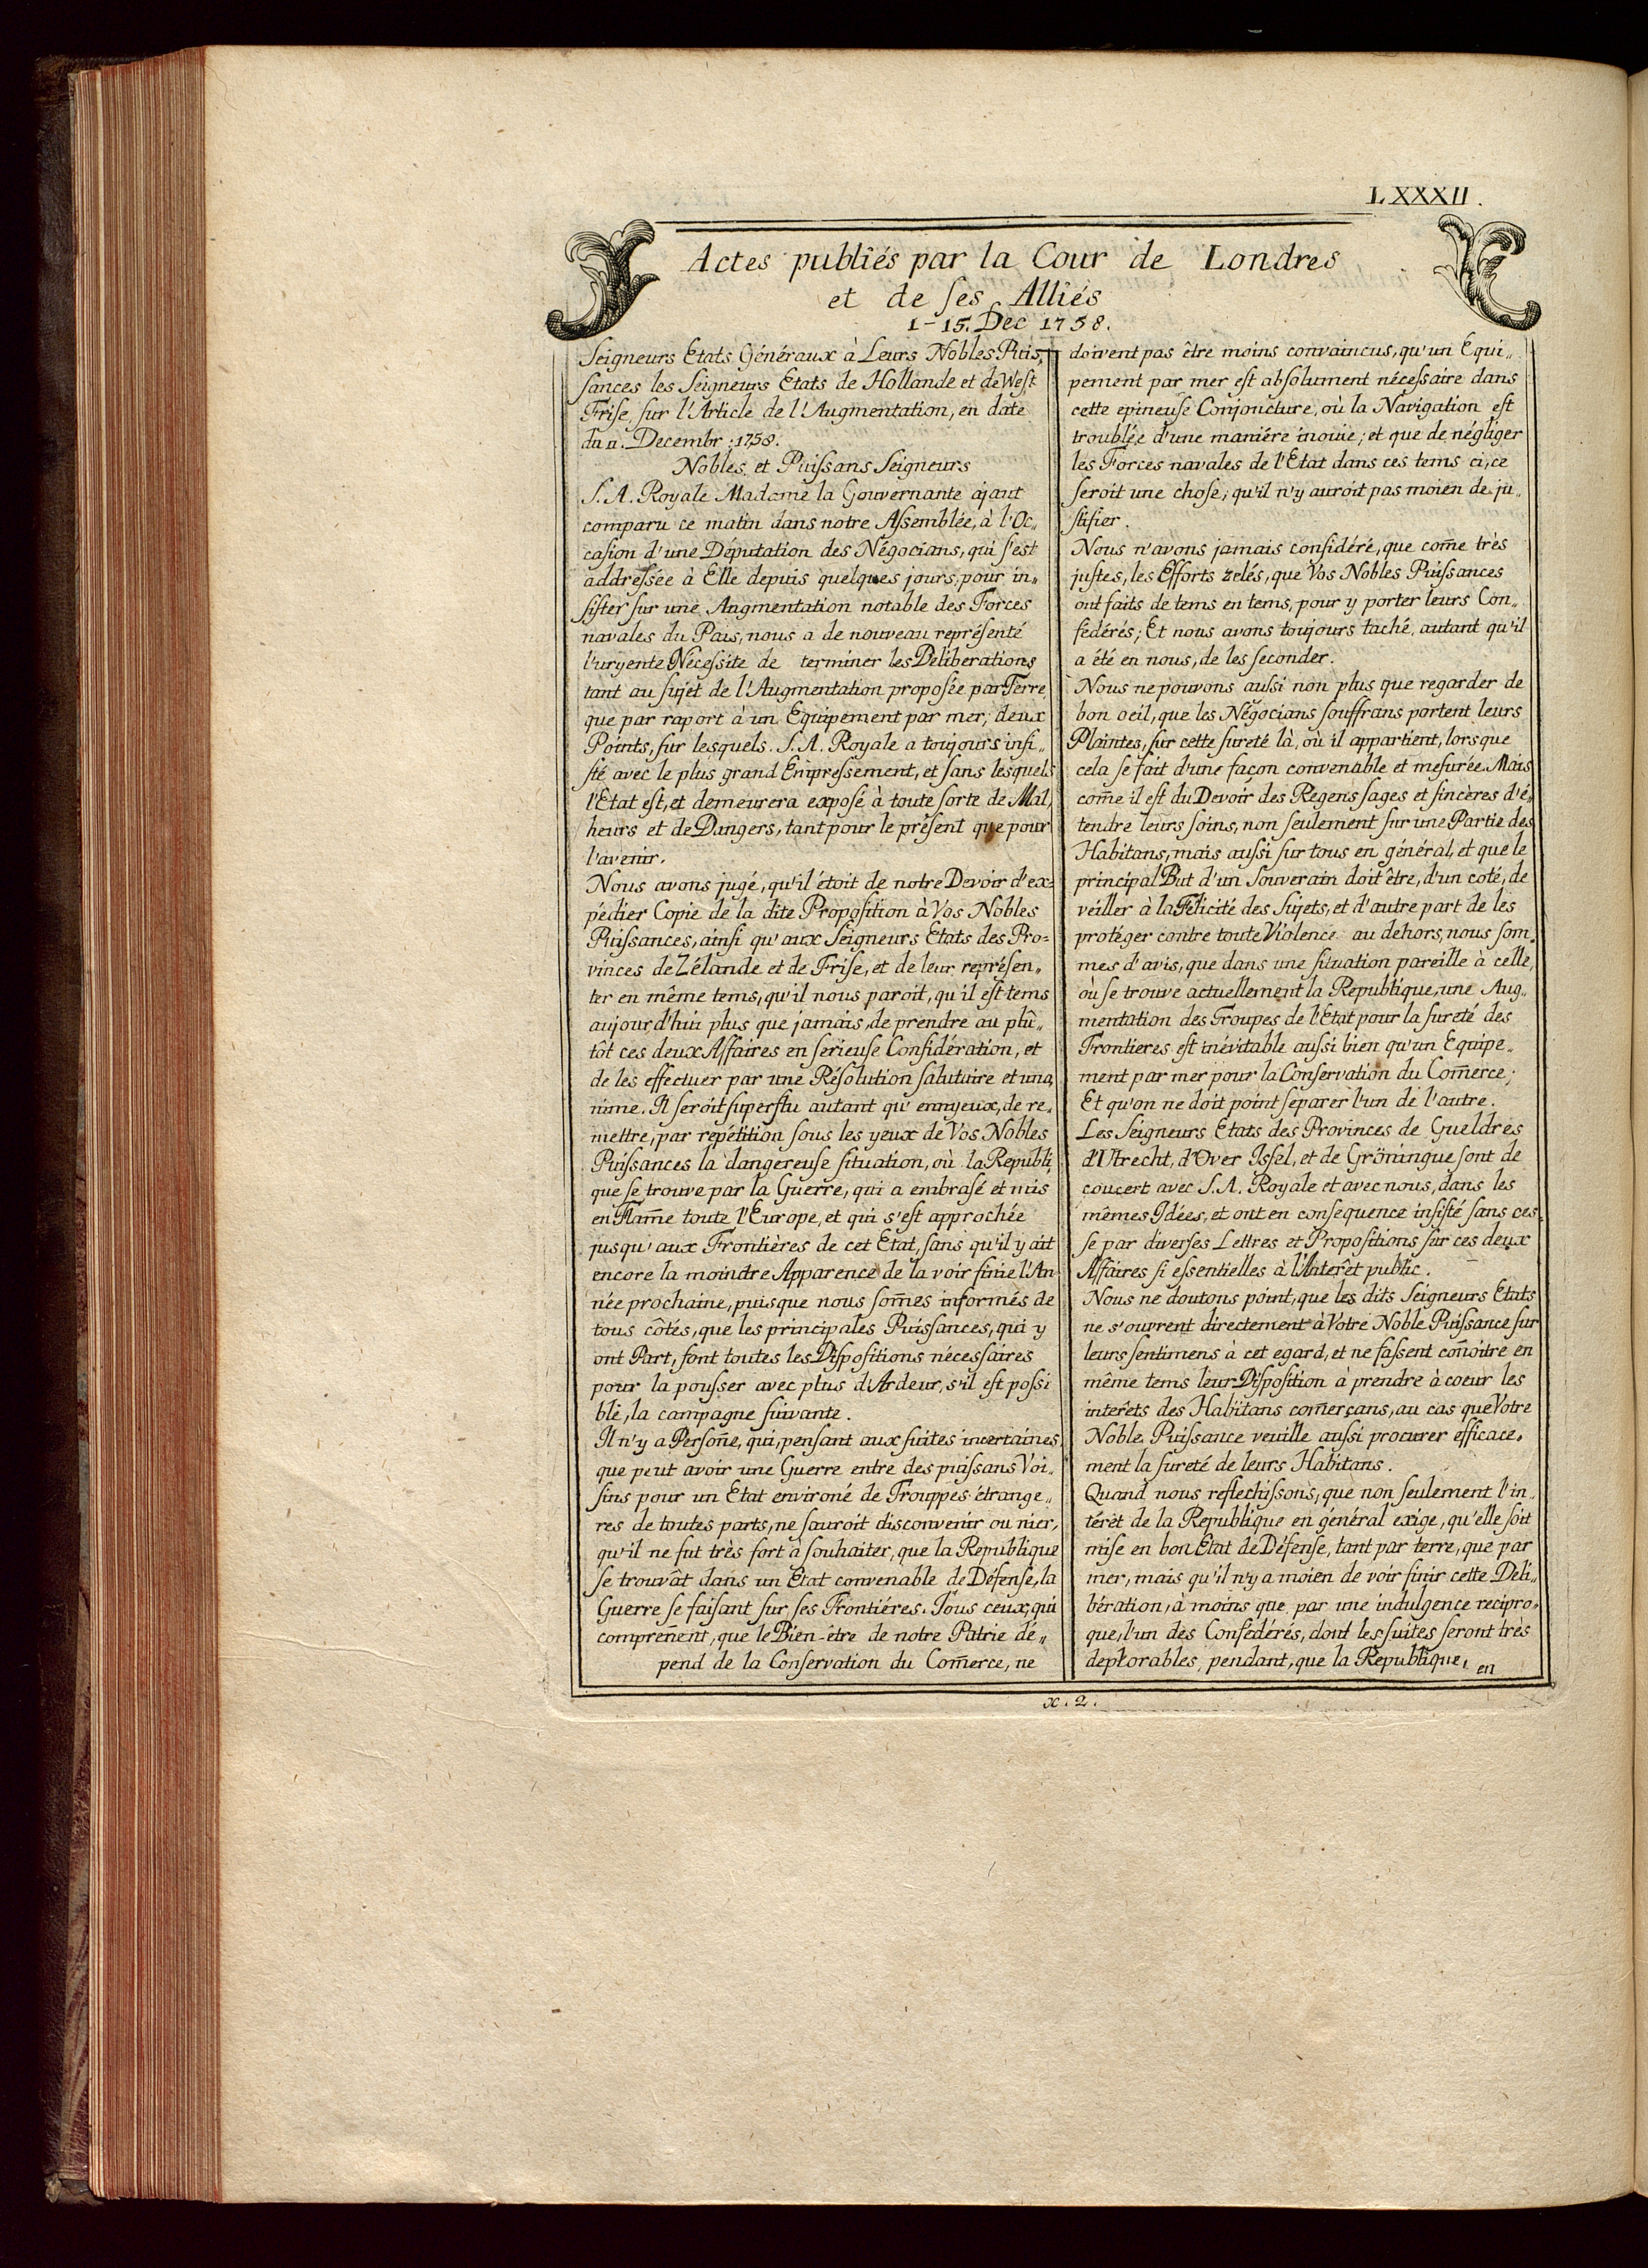 LXXXII.
Actes publiés par la Cour de Londres
et de ſes Alliés
1-15. Dec 1758.
Seigneurs Etats Généraux à Leurs Nobles Puis„
ſances les Seigneurs Etats de Hollande et de West
Friſe, ſur l'Article de l'Augmentation, en date
du 11. Decembr; 1758.
Nobles et Puiſsans Seigneurs
S. A. Royale Madame la Gouvernante ajant
comparu ce matin dans notre Aſsemblée, à l'Oc„
caſion d'une Députation des Négocians, qui s'est
addreſsée à Elle depuis quelques jours, pour in„
ſiſter ſur une Augmentation notable des Forces
navales du Pais, nous a de nouveau repréſenté
l'urgente Néceſsite de terminer les Déliberations
tant au ſujet de l'Augmentation propoſée par Terre,
que par raport à un Equipement par mer, deux
Points, ſur lesquels. S. A. Royale a toujours inſi„
ſté avec le plus grand Empreſsement, et ſans lesquels
l'Etat est, et demeurera expoſé à toute ſorte de Mal,
heurs et de Dangers, tant pour le préſent que pour
l'avenir.
Nous avons jugé, qu'il étoit de notre Devoir d'ex=
pédier Copie de la dite Propoſition à Vos Nobles
Puiſsances, ainſi qu'aux Seigneurs Etats des Pro=
vinces de Zélande et de Friſe, et de leur repréſen„
ter en même tems, qu'il nous paroit, qu'il est tems
aujourd'hui plus que jamais, de prendre au plû„
tôt ces deux Affaires en ſerieuſe Conſidération, et
de les effectuer par une Réſolution ſalutaire et una,
nime. Il ſeroit ſuperflu autant qu'ennyeux, de re„
mettre, par repétition ſous les yeux de Vos Nobles
Puiſsances la dangereuſe ſituation, où la Republi,
que ſe trouve par la Guerre, qui a embraſé et mis
en Flam̄e toute l'Europe, et qui s'est approchée
jusqu'aux Frontières de cet Etat, ſans qu'il y ait
encore la moindre Apparence de la voir finie l'An
née prochaine, puisque nous ſom̄es informés de
tous côtés, que les principales Puiſsances, qui y
ont Part, font toutes les Diſpoſitions néceſsaires
pour la pouſser avec plus d'Ardeur, s'il est poſsi
ble, la campagne ſuivante.
Il n'y a Perſon̄e, qui, penſant aux ſuites incertaines,
que peut avoir une Guerre entre des puiſsans Voi„
ſins pour un Etat environé de Trouppes étrange„
res de toutes parts, ne ſauroit disconvenir ou nier,
qu'il ne fut très fort à ſouhaiter, que la Republique
ſe trouvât dans un Etat convenable de Défenſe, la
Guerre ſe faiſant ſur ſes Frontiéres. Tous ceux, qui
compren̄ent, que le Bien-être de notre Patrie dé„
pend de la Conſervation du Com̄erce, ne
doivent pas être moins convaincus, qu'un Equi„
pement par mer est abſolument néceſsaire dans
cette epineuſe Conjoncture, où la Navigation est
troublée d'une maniére inouie; et que de négliger
les Forces navales de l'Etat dans ces tems ci, ce
ſeroit une choſe, qu'il n'y auroit pas moien de ju„
ſtifier.
Nous n'avons jamais conſidéré, que com̄e très
juſtes, les Efforts zelés, que Vos Nobles Puiſsances
ont faits de tems en tems, pour y porter leurs Con„
fedérés; Et nous avons toujours taché, autant qu'il
a été en nous, de les ſeconder.
Nous ne pouvons auſsi non plus que regarder de
bon oeil, que les Négocians ſouffrans portent leurs
Plaintes, ſur cette ſureté là, où il appartient, lorsque
cela ſe fait d'une façon convenable et meſurée. Mais
com̄e il est du Devoir des Regens ſages et ſincères d'é„
tendre leurs ſoins, non ſeulement ſur une Partie des
Habitans, mais auſsi ſur tous en général, et que le
principal But d'un Souverain doit être, d'un coté, de
véiller à la Félicité des Sujets, et d'autre part de les
protéger contre toute Violence au dehors, nous ſom„
mes d'avis, que dans une ſituation pareille à celle,
où ſe trouve actuellement la Republique, une Aug„
mentation des Troupes de l'Etat pour la ſureté des
Frontieres est inévitable auſsi bien qu'un Equipe„
ment par mer pour la Conſervation du Com̄erce;
Et qu'on ne doit point ſéparer l'un de l'autre.
Les Seigneurs Etats des Provinces de Gueldres
d'Utrecht, d'Over Jſsel, et de Gröningue ſont de
concert avec S. A. Royale et avec nous, dans les
mêmes Idées, et ont en conſequence inſiſté ſans ces=
ſe par diverſes Lettres et Propoſitions ſur ces deux
Affaires ſi eſsentielles à l'Interêt public.
Nous ne doutons point, que les dits Seigneurs Etats
ne s'ouvrent directement à Votre Noble Puiſsance ſur
leurs ſentimens à cet egard, et ne faſsent con̄oitre en
même tems leur Diſpoſition à prendre à coeur les
interêts des Habitans com̄erçans, au cas que Votre
Noble Puiſsance veuille auſsi procurer efficace„
ment la ſureté de leurs Habitans.
Quand nous reflechiſsons, que non ſeulement l'in„
térêt de la Republique en général exige, qu'elle ſoit
miſe en bon Etat de Défenſe, tant par terre, que par
mer, mais qu'il n'y a moien de voir finir cette Deli„
bération, à moins que par une indulgence recipro„
que, l'un des Conſedérés, dont les ſuites ſeront très
deplorables, pendant, que la Republique, en
x. 2.